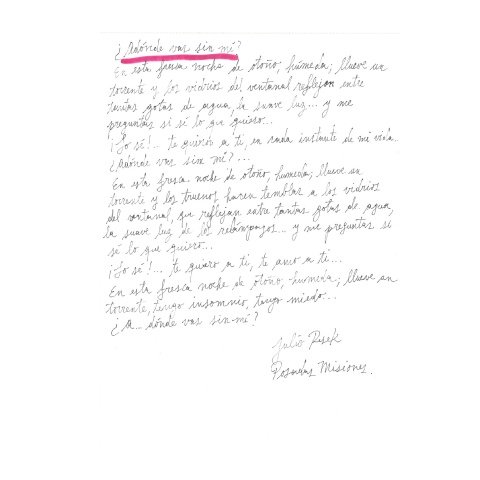 ¿Adónde vas sin mí?
En esta fresca noche de otoño, húmeda; llueve un
torrente y los vidrios del ventanal reflejan entre
tantas gotas de agua, la suave luz... y me
preguntas si sé lo que quiero...
¡Lo sé!... te quiero a ti, en cada instante de mi vida...
¿Adónde vas sin mí?...
En esta fresca noche de otoño, humeda; llueve un
torrente y los truenos, hacen temblar a los vidrios
del ventanal, que reflejan entre tantas gotas de agua,
la suave luz de los relámpagos... y me preguntas si
sé lo que quiero...
¡Lo sé!... te quiero a ti, te amo a ti...
En esta fresca noche de otoño, humeda; llueve un
torrente, tengo insomnio, tengo miedo...
¿A... dónde vas sin mí?
Julio
Posadas Misiones.